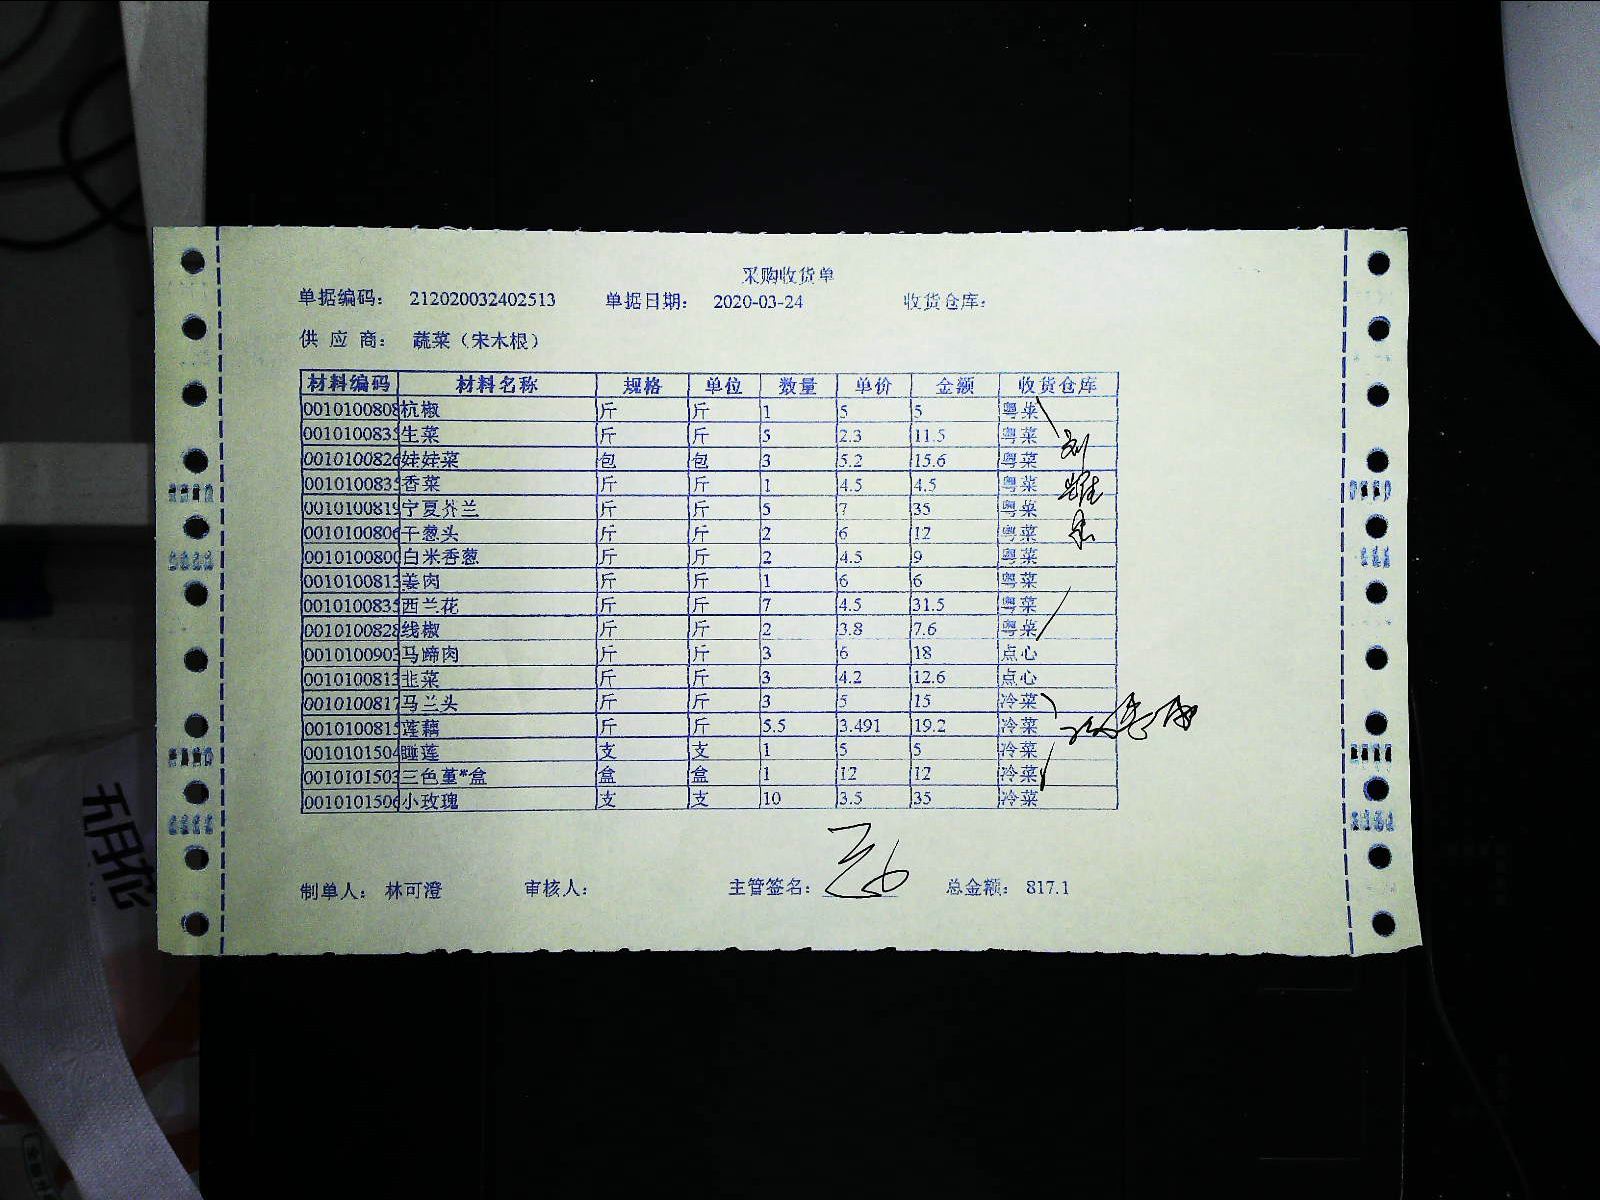 采购收货单
单据编码： 212020032402513 单据日期： 2020-03-24 收货仓库：
供 应 商： 蔬菜（宋木根）
材料编码 材料名称 规格 单位 数量 单价 金额 收货仓库
0010100808 杭椒 斤 斤 1 5 5 粤菜
001010083 生菜 斤 斤 5 2.3 11.5 粤菜
0010100826 娃娃菜 包 包 3 5.2 15.6 粤菜
001010083 香菜 斤 斤 1 4.5 4.5 粤菜
001010081 宁夏芥兰 斤 斤 5 7 35 粤菜
0010100806 干葱头 斤 斤 2 6 12 粤菜
0010100800 白米香葱 斤 斤 2 4.5 9 粤菜
001010081 姜肉 斤 斤 1 6 6 粤菜
001010083 西兰花 斤 斤 7 4.5 31.5 粤菜
0010100828 线椒 斤 斤 2 3.8 7.6 粤菜
0010100903 马蹄肉 斤 斤 3 6 18 点心
001010081 韭菜 斤 斤 3 4.2 12.6 点心
0010100817 马兰头 斤 斤 3 5 15 冷菜
001010081 莲藕 斤 斤 5.5 3.491 19.2 冷菜
0010101504 睡莲 支 支 1 5 5 冷菜
0010101503 三色堇*盒 盒 盒 1 12 12 冷菜
0010101506 小玫瑰 支 支 10 3.5 35 冷菜
制单人： 林可澄 审核人： 主管签名： 总金额： 817.1